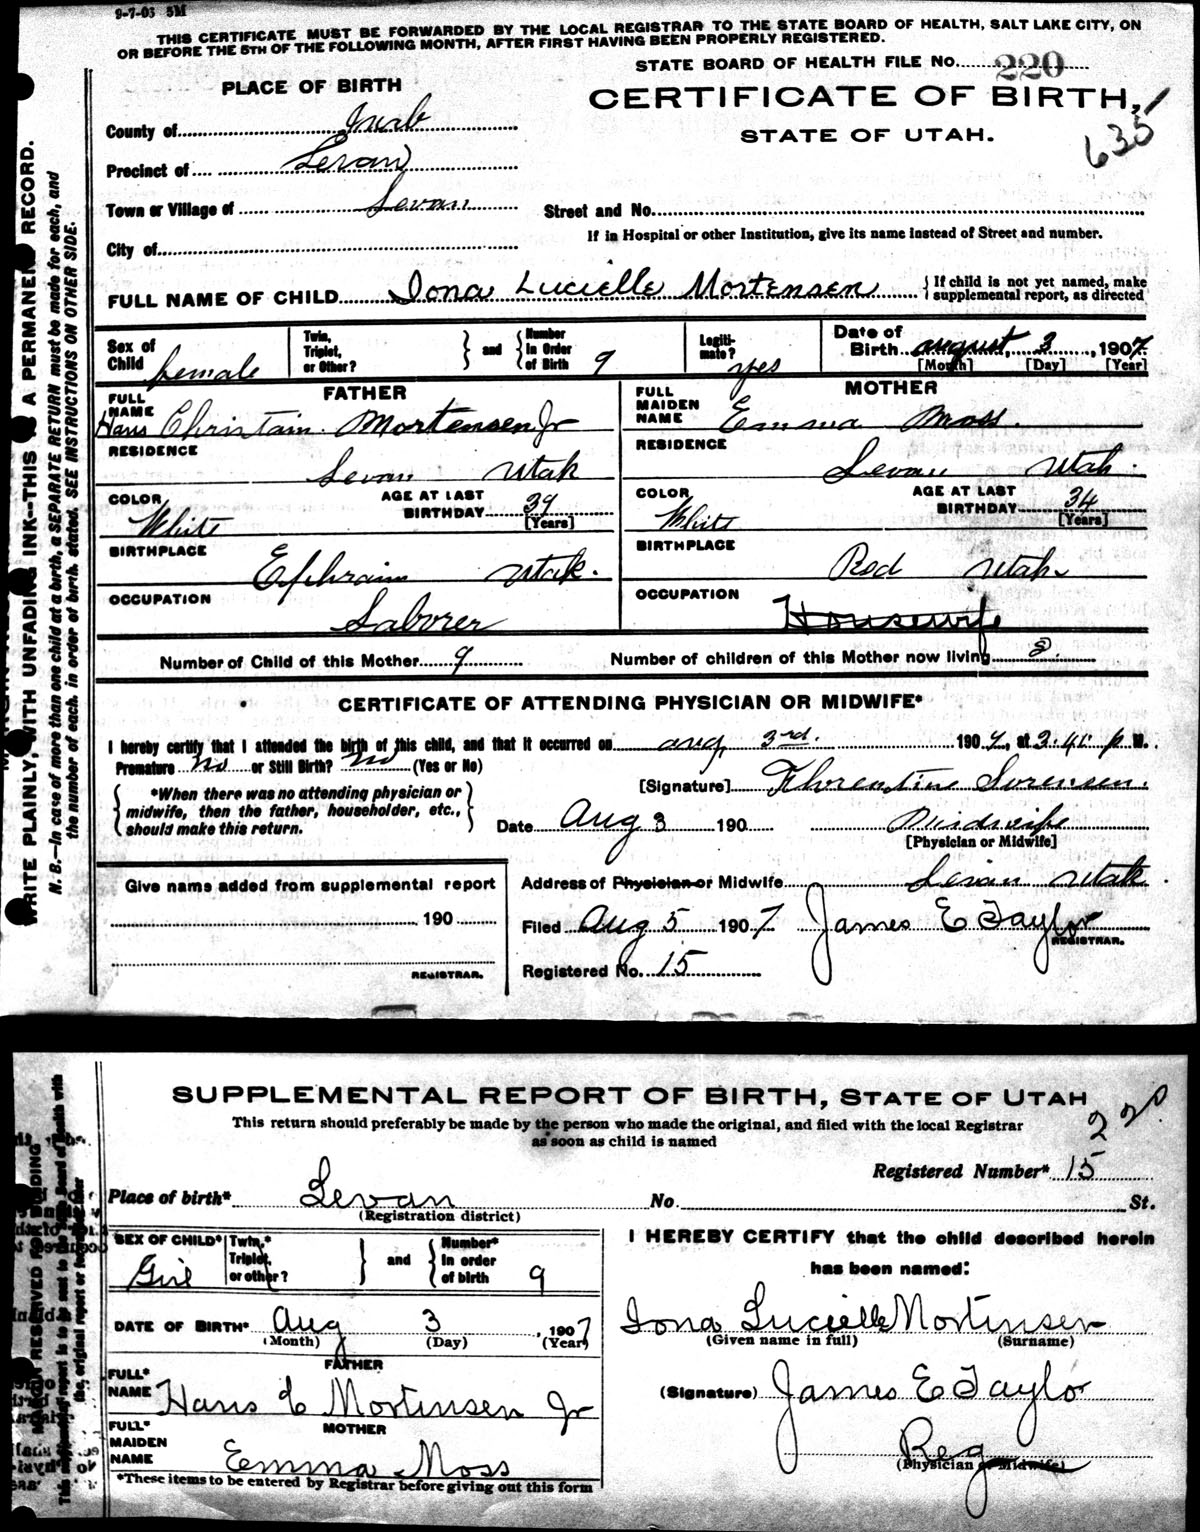 9-7-03 5M
THIS CERTIFICATE MUST BE FORWARDED BY THE LOCAL REGISTRAR TO THE STATE BOARD OF HEALTH, SALT LAKE CITY, ON
OR BEFORE THE 5TH OF THE FOLLOWING MONTH, AFTER FIRST HAVING BEEN PROPERLY REGISTERED.
STATE BOARD OF HEALTH FILE No. 220
PLACE OF BIRTH
CERTIFICATE OF BIRTH,
STATE OF UTAH.
635
County of Juab
Precinct of Levan
Town or Village of Levan
Street and No.
If in Hospital or other Institution, give its name instead of Street and number.
City of
FULL NAME OF CHILD Iona Lucielle Mortensen
{ If child is not yet named, make
supplemental report, as directed
Sex of Child female
Twin, Triplet, or Other? } and { Number in Order of Birth 9
Legitimate? yes
Date of Birth august 3, 1907
[Month] [Day] [Year]
FATHER
FULL NAME Hans Christain Mortensen Jr
RESIDENCE
Levan Utah
COLOR White
AGE AT LAST BIRTHDAY 39 [Years]
BIRTHPLACE
Ephraim Utah.
OCCUPATION
Laborer
MOTHER
FULL MAIDEN NAME Emma Moss.
RESIDENCE
Levan Utah.
COLOR White
AGE AT LAST BIRTHDAY 34 [Years]
BIRTHPLACE
Utah
OCCUPATION
Housewife
Number of Child of this Mother 9
Number of children of this Mother now living 8
CERTIFICATE OF ATTENDING PHYSICIAN OR MIDWIFE*
I hereby certify that I attended the birth of this child, and that it occurred on aug 3rd. 1907, at 3.45 p M.
Premature no or Still Birth? no (Yes or No)
[Signature] Florentine Sorensen.
{ *When there was no attending physician or
midwife, then the father, householder, etc.,
should make this return. }
Date Aug 3 190
Midwife
[Physician or Midwife]
Address of Physician or Midwife Levan Utah.
Give name added from supplemental report
190
REGISTRAR.
Filed Aug 5 1907 James E Taylor
REGISTRAR.
Registered No. 15
WRITE PLAINLY, WITH UNFADING INK--THIS IS A PERMANENT RECORD.
N. B.--In case of more than one child at a birth, a SEPARATE RETURN must be made for each, and
the number of each, in order of birth, stated. SEE INSTRUCTIONS ON OTHER SIDE.
SUPPLEMENTAL REPORT OF BIRTH, STATE OF UTAH
This return should preferably be made by the person who made the original, and filed with the local Registrar
as soon as child is named
220
Registered Number* 15
Place of birth* Levan No. St.
(Registration district)
SEX OF CHILD* Girl
Twin,* Triplet, or other? } and { Number* in order of birth 9
DATE OF BIRTH* Aug 3, 1907
(Month) (Day) (Year)
FATHER
FULL* NAME Hans C Mortinsen Jr
MOTHER
FULL* MAIDEN NAME Emma Moss
*These items to be entered by Registrar before giving out this form
I HEREBY CERTIFY that the child described herein
has been named:
Iona Lucielle Mortinsen
(Given name in full) (Surname)
(Signature) James E Taylor
Reg
(Physician or Midwife)
MARGIN RESERVED FOR BINDING